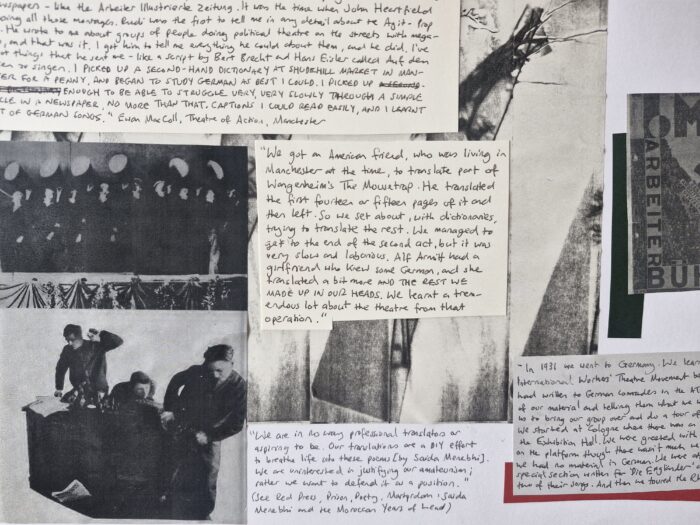 wspapers - like the Arbeiter Illustrierte Zeitung. It was the time when John Heartfield
oing all those montages. Rudi was the first to tell me in any detail about the Agit-Prop
. He wrote to me about groups of people doing political theatre on the streets with mega-
, and that was it. I got him to tell me everything he could about them, and he did. I've
ot things that he sent me - like a script by Bert Brecht and Hans Eisler called Auf den
en zu singen. I PICKED UP A SECOND-HAND DICTIONARY AT SHUDEHILL MARKET IN MAN-
ER FOR A PENNY, AND BEGAN TO STUDY GERMAN AS BEST I COULD. I PICKED UP
ENOUGH TO BE ABLE TO STRUGGLE VERY, VERY SLOWLY THROUGH A SIMPLE
CLE IN A NEWSPAPER, NO MORE THAN THAT. CAPTIONS I COULD READ EASILY, AND I LEARNT
T OF GERMAN SONGS." Ewan MacColl, Theatre of Action, Manchester
"We got an American friend, who was living in
Manchester at the time, to translate part of
Wangenheim's The Mousetrap. He translated
the first fourteen or fifteen pages of it and
then left. So we set about, with dictionaries,
trying to translate the rest. We managed to
get to the end of the second act, but it was
very slow and laborious. Alf Armitt had a
girlfriend who knew some German, and she
translated a bit more AND THE REST WE
MADE UP IN OUR HEADS. We learnt a trem-
endous lot about the theatre from that
operation."
ARBEITER
BU
"We are in no way professional translators or
aspiring to be. Our translations are a DIY effort
to breathe life into these poems [by Saida Menebhi].
We are uninterested in justifying our amateurism;
rather we want to defend it as a position."
(See Red Press, Prison, Poetry, Martyrdom: Saida
Menebhi and the Moroccan Years of Lead)
- In 1931 we went to Germany. We lear
International Workers' Theatre Movement be
had written to German comrades in the
of our material and telling them what we w
us to bring our group over and do a tour of
We started at Cologne where there was an
the Exhibition Hall. We were greeted with
on the platform though there wasn't much we
we had no material in German. We were
special section written for 'Die Engländer'
two of their songs. And then we toured the Rh